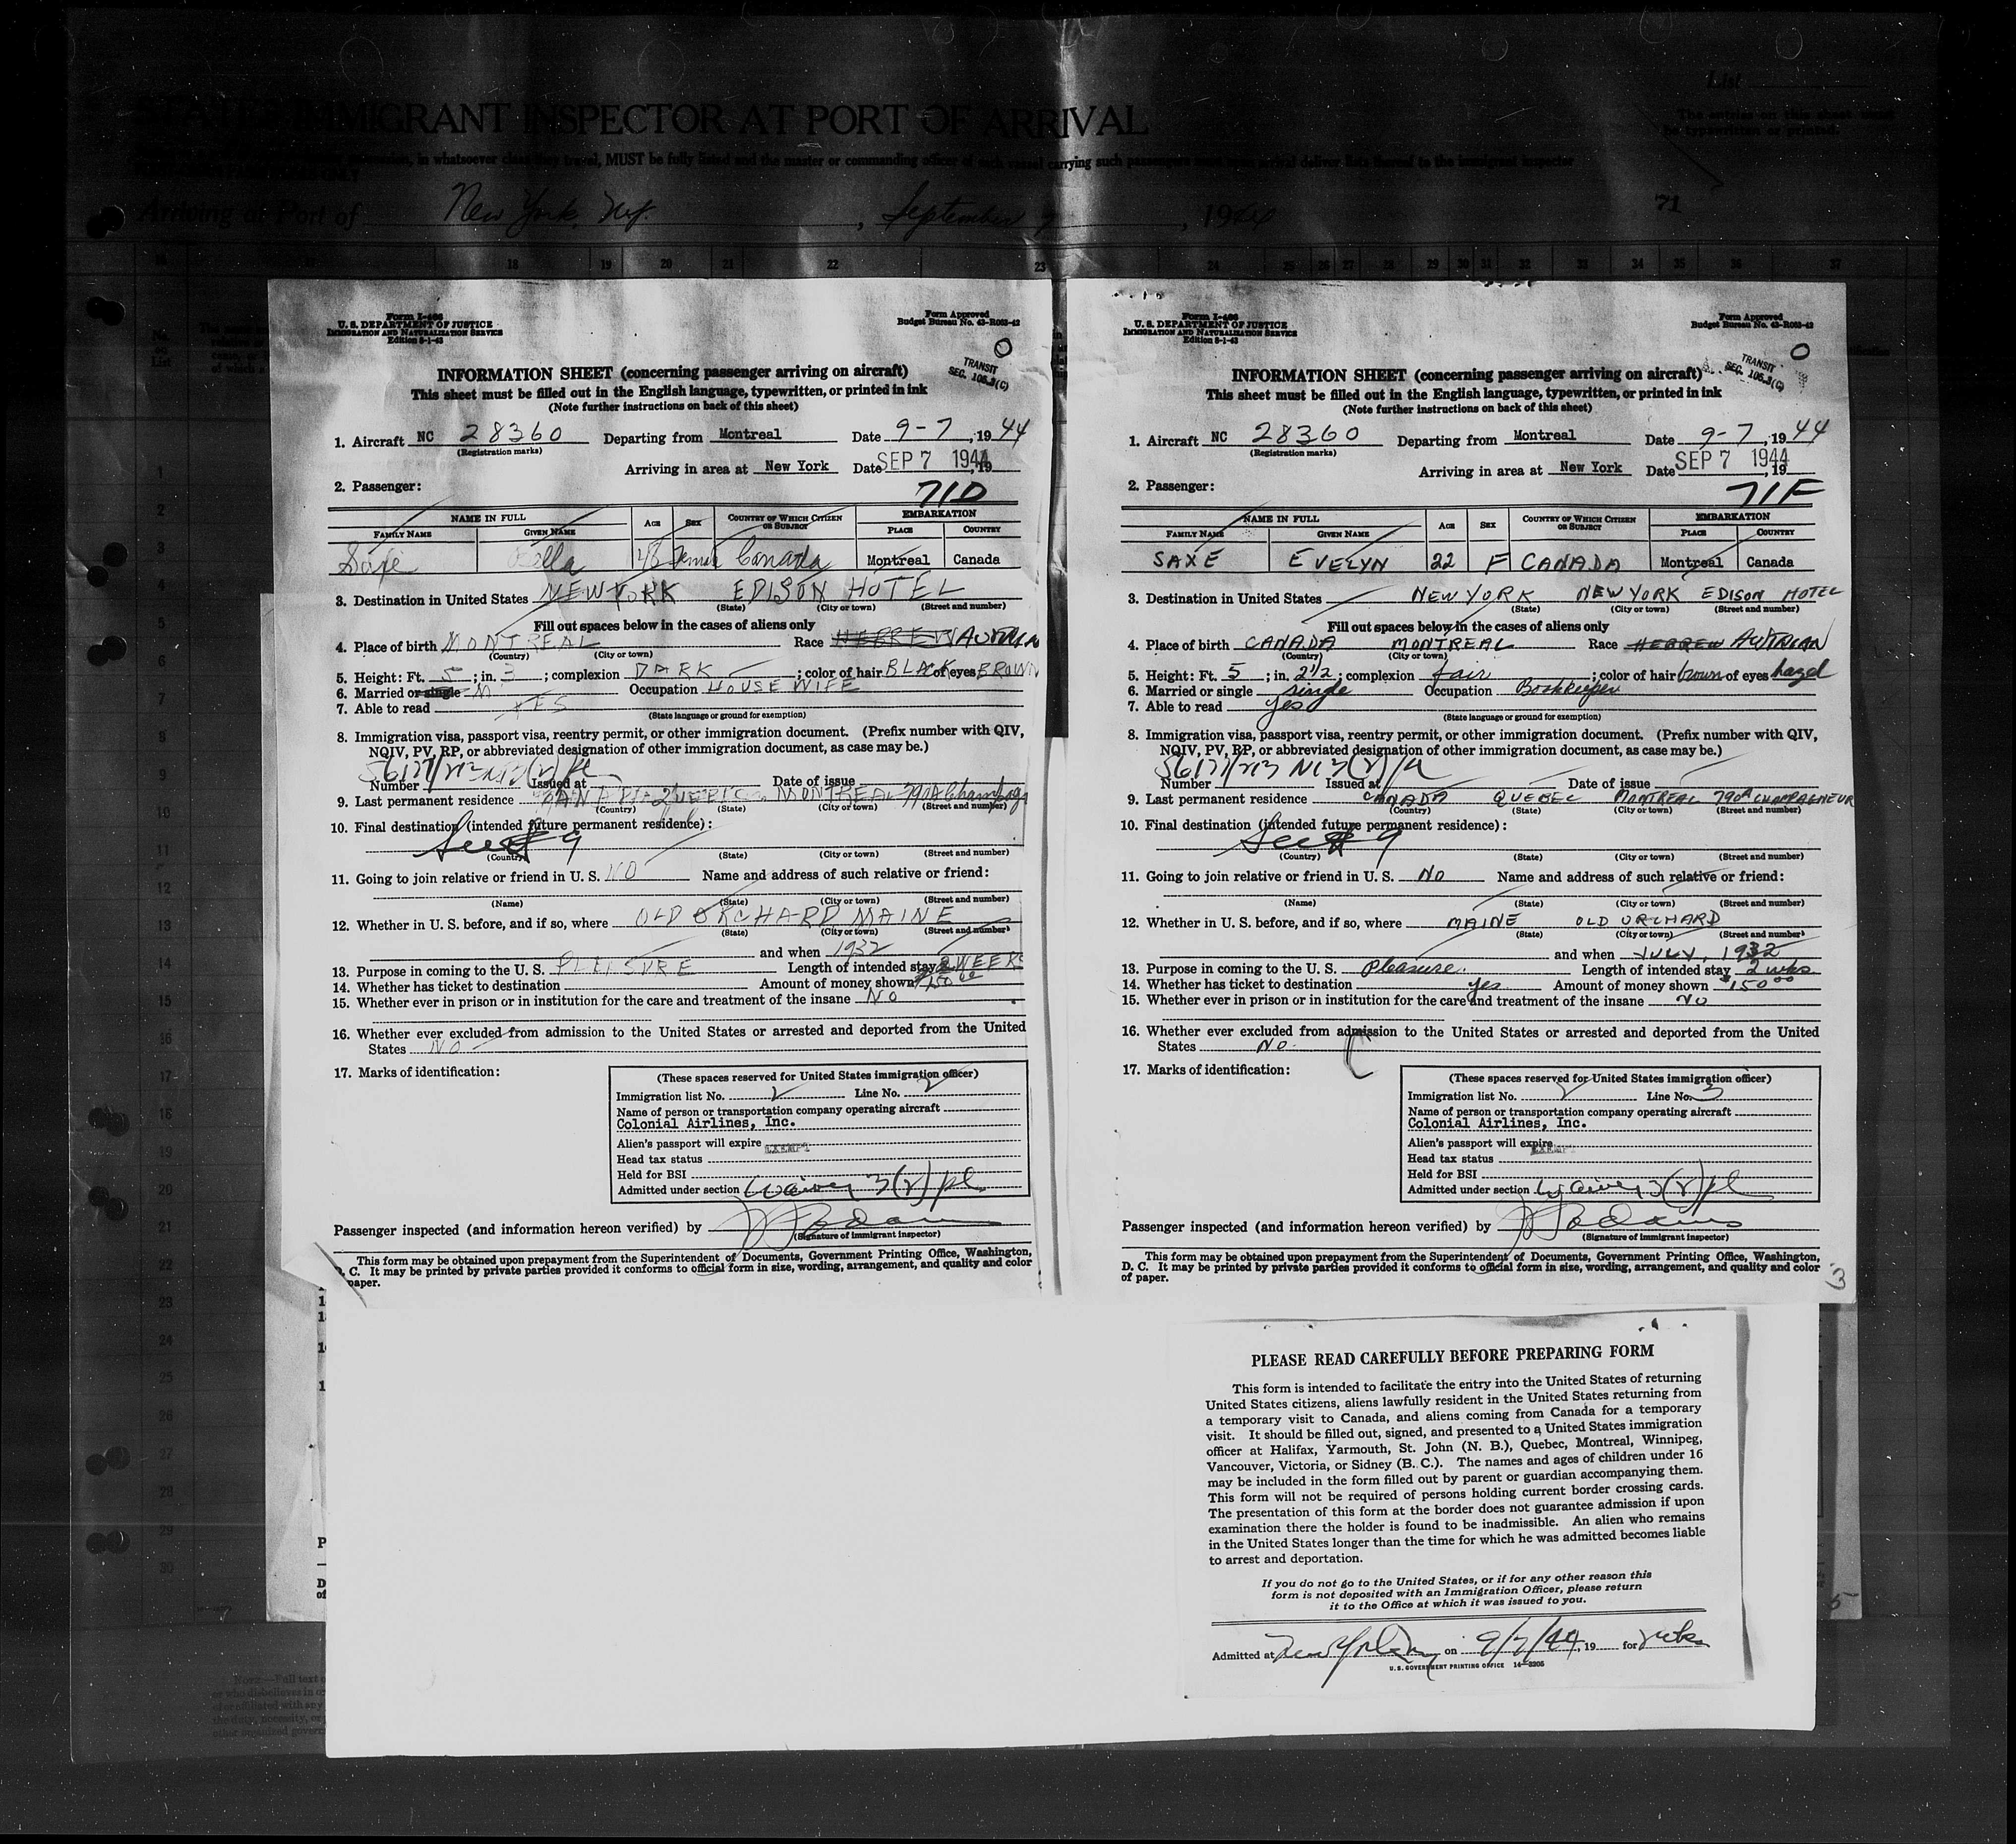 List
STATES IMMIGRANT INSPECTOR AT PORT OF ARRIVAL
The entries on this sheet must
be typewritten or printed.
in whatsoever class they travel, MUST be fully listed and the master or commanding officer of each vessel carrying such passengers must upon arrival deliver lists thereof to the immigrant inspector
Arriving at Port of New York, N.Y. , September 7 , 1944
71
17 18 19 20 21 22 23 24 25 26 27 28 29 30 31 32 33 34 35 36 37
Form I-466
U. S. DEPARTMENT OF JUSTICE
IMMIGRATION AND NATURALIZATION SERVICE
Edition 8-1-43
Form Approved
Budget Bureau No. 43-R063-42
TRANSIT
SEC. 106.3(C)
INFORMATION SHEET (concerning passenger arriving on aircraft)
This sheet must be filled out in the English language, typewritten, or printed in ink
(Note further instructions on back of this sheet)
1. Aircraft NC 28360 Departing from Montreal Date 9-7, 1944
(Registration marks)
Arriving in area at New York Date SEP 7 1944, 19
2. Passenger:
71D
NAME IN FULL AGE SEX COUNTRY OF WHICH CITIZEN OR SUBJECT EMBARKATION
FAMILY NAME GIVEN NAME PLACE COUNTRY
Saxe Bella 48 Canada Montreal Canada
3. Destination in United States NEW YORK EDISON HOTEL
(State) (City or town) (Street and number)
Fill out spaces below in the cases of aliens only
4. Place of birth MONTREAL Race HEBREW AUSTRIAN
(Country) (City or town)
5. Height: Ft. 5; in. 3; complexion DARK; color of hair BLACK of eyes BROWN
6. Married or single M Occupation HOUSE WIFE
7. Able to read YES
(State language or ground for exemption)
8. Immigration visa, passport visa, reentry permit, or other immigration document. (Prefix number with QIV,
NQIV, PV, RP, or abbreviated designation of other immigration document, as case may be.)
Number Issued at Date of issue
9. Last permanent residence CANADA QUEBEC MONTREAL 790A Champagneur
(Country) (State) (City or town) (Street and number)
10. Final destination (intended future permanent residence):
See # 9
(Country) (State) (City or town) (Street and number)
11. Going to join relative or friend in U. S. NO Name and address of such relative or friend:
(Name) (State) (City or town) (Street and number)
12. Whether in U. S. before, and if so, where OLD ORCHARD MAINE
(State) (City or town) (Street and number)
and when 1932
13. Purpose in coming to the U. S. PLEASURE Length of intended stay 2 WEEKS
14. Whether has ticket to destination Amount of money shown $150.00
15. Whether ever in prison or in institution for the care and treatment of the insane NO
16. Whether ever excluded from admission to the United States or arrested and deported from the United
States NO
17. Marks of identification:
(These spaces reserved for United States immigration officer)
Immigration list No. 2 Line No. 2
Name of person or transportation company operating aircraft
Colonial Airlines, Inc.
Alien's passport will expire EXEMPT
Head tax status
Held for BSI
Admitted under section Waiver 3(2) pl
Passenger inspected (and information hereon verified) by
(Signature of immigrant inspector)
This form may be obtained upon prepayment from the Superintendent of Documents, Government Printing Office, Washington,
D. C. It may be printed by private parties provided it conforms to official form in size, wording, arrangement, and quality and color
paper.
Form I-466
U. S. DEPARTMENT OF JUSTICE
IMMIGRATION AND NATURALIZATION SERVICE
Edition 8-1-43
Form Approved
Budget Bureau No. 43-R063-42
TRANSIT
SEC. 106.3(C)
INFORMATION SHEET (concerning passenger arriving on aircraft)
This sheet must be filled out in the English language, typewritten, or printed in ink
(Note further instructions on back of this sheet)
1. Aircraft NC 28360 Departing from Montreal Date 9-7, 1944
(Registration marks)
Arriving in area at New York Date SEP 7 1944, 19
2. Passenger:
71F
NAME IN FULL AGE SEX COUNTRY OF WHICH CITIZEN OR SUBJECT EMBARKATION
FAMILY NAME GIVEN NAME PLACE COUNTRY
SAXE EVELYN 22 F CANADA Montreal Canada
3. Destination in United States NEW YORK NEW YORK EDISON HOTEL
(State) (City or town) (Street and number)
Fill out spaces below in the cases of aliens only
4. Place of birth CANADA MONTREAL Race HEBREW AUSTRIAN
(Country) (City or town)
5. Height: Ft. 5; in. 2 1/2; complexion fair; color of hair brown of eyes hazel
6. Married or single single Occupation Bookkeeper
7. Able to read yes
(State language or ground for exemption)
8. Immigration visa, passport visa, reentry permit, or other immigration document. (Prefix number with QIV,
NQIV, PV, RP, or abbreviated designation of other immigration document, as case may be.)
Number Issued at Date of issue
9. Last permanent residence CANADA QUEBEC MONTREAL 790A CHAMPAGNEUR
(Country) (State) (City or town) (Street and number)
10. Final destination (intended future permanent residence):
See # 9
(Country) (State) (City or town) (Street and number)
11. Going to join relative or friend in U. S. NO Name and address of such relative or friend:
(Name) (State) (City or town) (Street and number)
12. Whether in U. S. before, and if so, where MAINE OLD ORCHARD
(State) (City or town) (Street and number)
and when JULY, 1932
13. Purpose in coming to the U. S. Pleasure. Length of intended stay 2 wks
14. Whether has ticket to destination yes Amount of money shown $150.00
15. Whether ever in prison or in institution for the care and treatment of the insane NO
16. Whether ever excluded from admission to the United States or arrested and deported from the United
States NO.
17. Marks of identification:
(These spaces reserved for United States immigration officer)
Immigration list No. 2 Line No. 3
Name of person or transportation company operating aircraft
Colonial Airlines, Inc.
Alien's passport will expire EXEMPT
Head tax status
Held for BSI
Admitted under section Waiver 3(2) pl
Passenger inspected (and information hereon verified) by
(Signature of immigrant inspector)
This form may be obtained upon prepayment from the Superintendent of Documents, Government Printing Office, Washington,
D. C. It may be printed by private parties provided it conforms to official form in size, wording, arrangement, and quality and color
of paper.
3
PLEASE READ CAREFULLY BEFORE PREPARING FORM
This form is intended to facilitate the entry into the United States of returning
United States citizens, aliens lawfully resident in the United States returning from
a temporary visit to Canada, and aliens coming from Canada for a temporary
visit. It should be filled out, signed, and presented to a United States immigration
officer at Halifax, Yarmouth, St. John (N. B.), Quebec, Montreal, Winnipeg,
Vancouver, Victoria, or Sidney (B. C.). The names and ages of children under 16
may be included in the form filled out by parent or guardian accompanying them.
This form will not be required of persons holding current border crossing cards.
The presentation of this form at the border does not guarantee admission if upon
examination there the holder is found to be inadmissible. An alien who remains
in the United States longer than the time for which he was admitted becomes liable
to arrest and deportation.
If you do not go to the United States, or if for any other reason this
form is not deposited with an Immigration Officer, please return
it to the Office at which it was issued to you.
Admitted at New York on 9/7/44, 19 for 2 wks
U. S. GOVERNMENT PRINTING OFFICE 14-3205